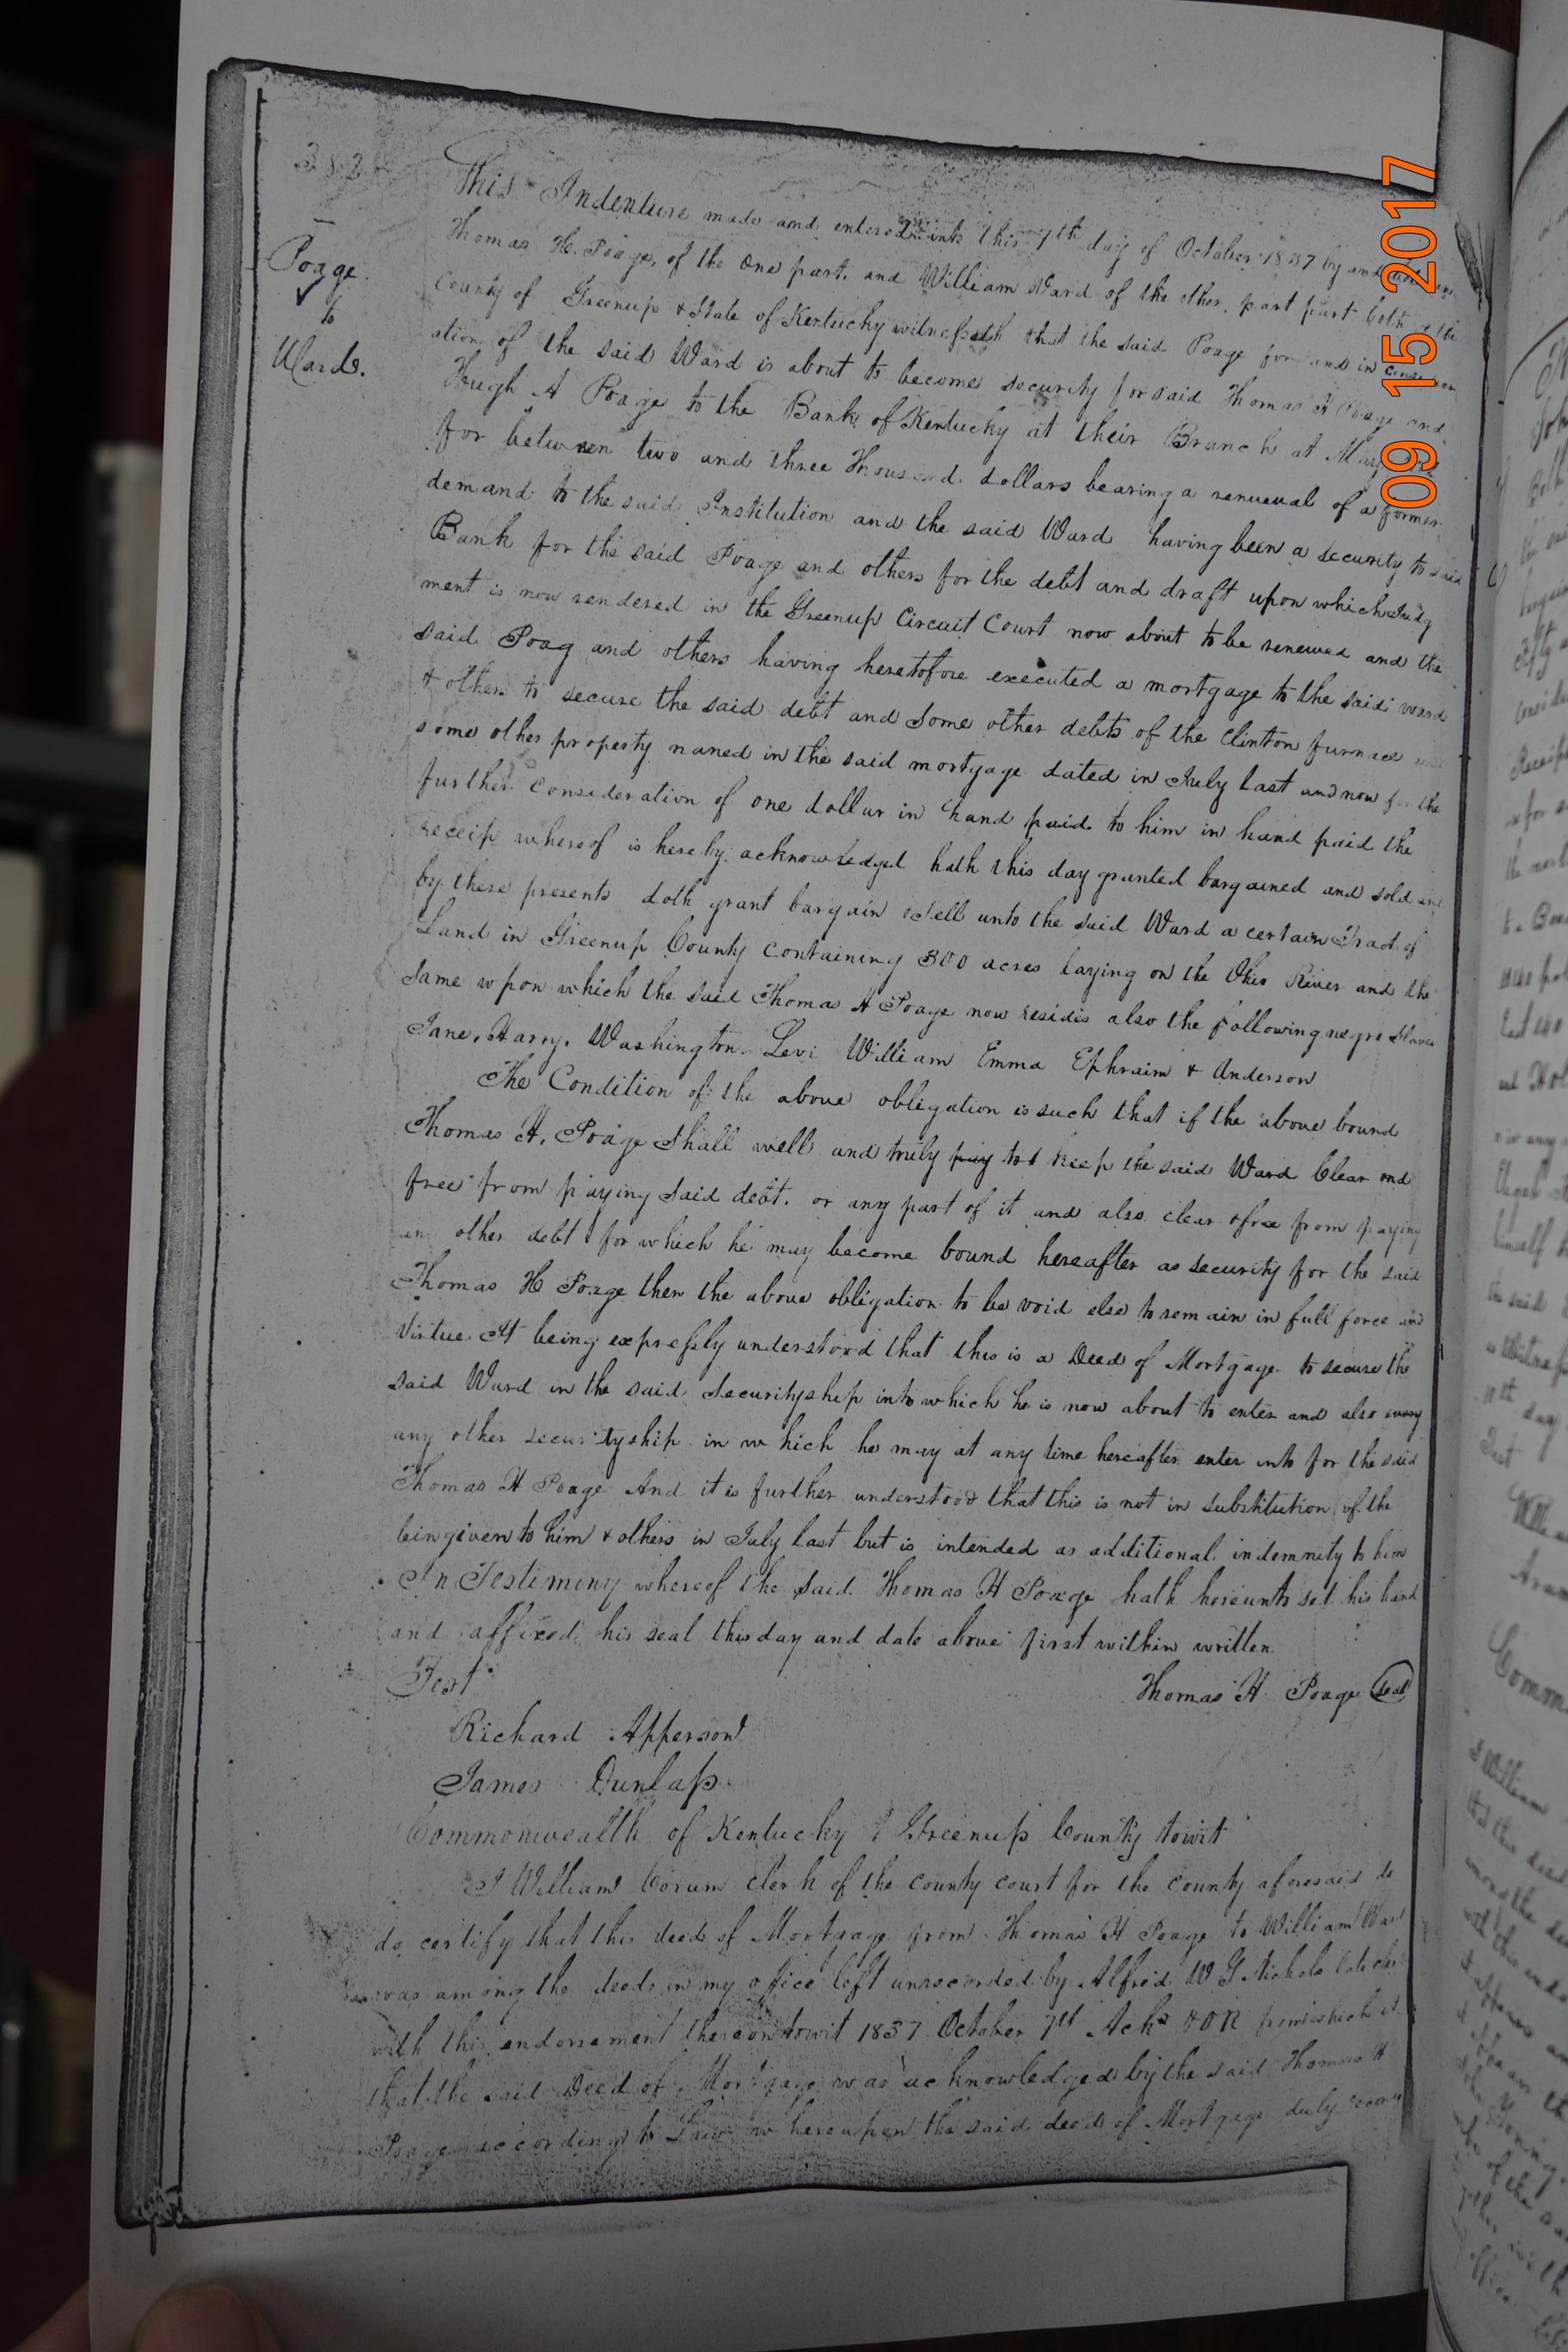 382
Poage
to
Ward.
This Indenture made and entered into this 7th day of October 1837 by and between
Thomas H. Poage, of the one part, and William Ward of the other part part both of the
County of Greenup & State of Kentucky witnesseth that the said Poage for and in consider
ation of the said Ward is about to become security for said Thomas H Poage and
Hugh A Poage to the Bank of Kentucky at their Branch at
for between two and three Thousand dollars bearing a renuewal of a former
demand to the said Institution and the said Ward having been a security to said
Bank for the said Poage and others for the debt and draft upon which Judg
ment is now rendered in the Greenup Circuit Court now about to be renewed and the
said Poag and others having heretofore executed a mortgage to the said ward
& others to secure the said debt and Some other debts of the Clinton furnace
some other property named in the said mortgage dated in July last and now for the
further consideration of one dollar in hand paid to him in hand paid the
receip whereof is hereby acknowledged hath this day granted bargained and sold and
by these presents doth grant bargain & Sell unto the said Ward a certain Tract of
Land in Greenup County containing 300 acres laying on the Ohio River and the
Same upon which the said Thomas H Poage now resides also the following negro Slaves
Jane, Harry, Washington, Levi William Emma Ephraim & Anderson
The Condition of the above obligation is such that if the above bound
Thomas H. Poage Shall well and truly pay to keep the said Ward Clear and
free from paying Said debt, or any part of it and also clear & free from paying
any other debt for which he may become bound hereafter as security for the said
Thomas H Poage then the above obligation to be void else to remain in full force and
Virtue It being expressly understood that this is a Deed of Mortgage to secure the
said Ward in the said Securityship into which he is now about to enter and also every
any other securityship in which he may at any time hereafter enter into for the said
Thomas H Poage And it is further understood that this is not in substitution of the
lein given to him & others in July last but is intended as additional indemnity to him
In Testimony whereof the Said Thomas H Poage hath hereunto set his hand
and affixed his seal this day and date above first within written
Test
Thomas H Poage Seal
Richard Apperson
James Dunlap
Commonwealth of Kentucky Greenup County towit
I William Corum clerk of the county court for the county aforesaid do
do certify that this deed of Mortgage from Thomas H Poage to William Ward
was among the deeds in my office left unrecorded by Alfred W G Nichols late clerk
with this endorsement thereon towit 1837 October 7th Ackd & OR from which it
that the said Deed of Mortgage was acknowledged by the said Thomas H
Poage according to Law whereupon the said deed of Mortgage duly
09 15 2017